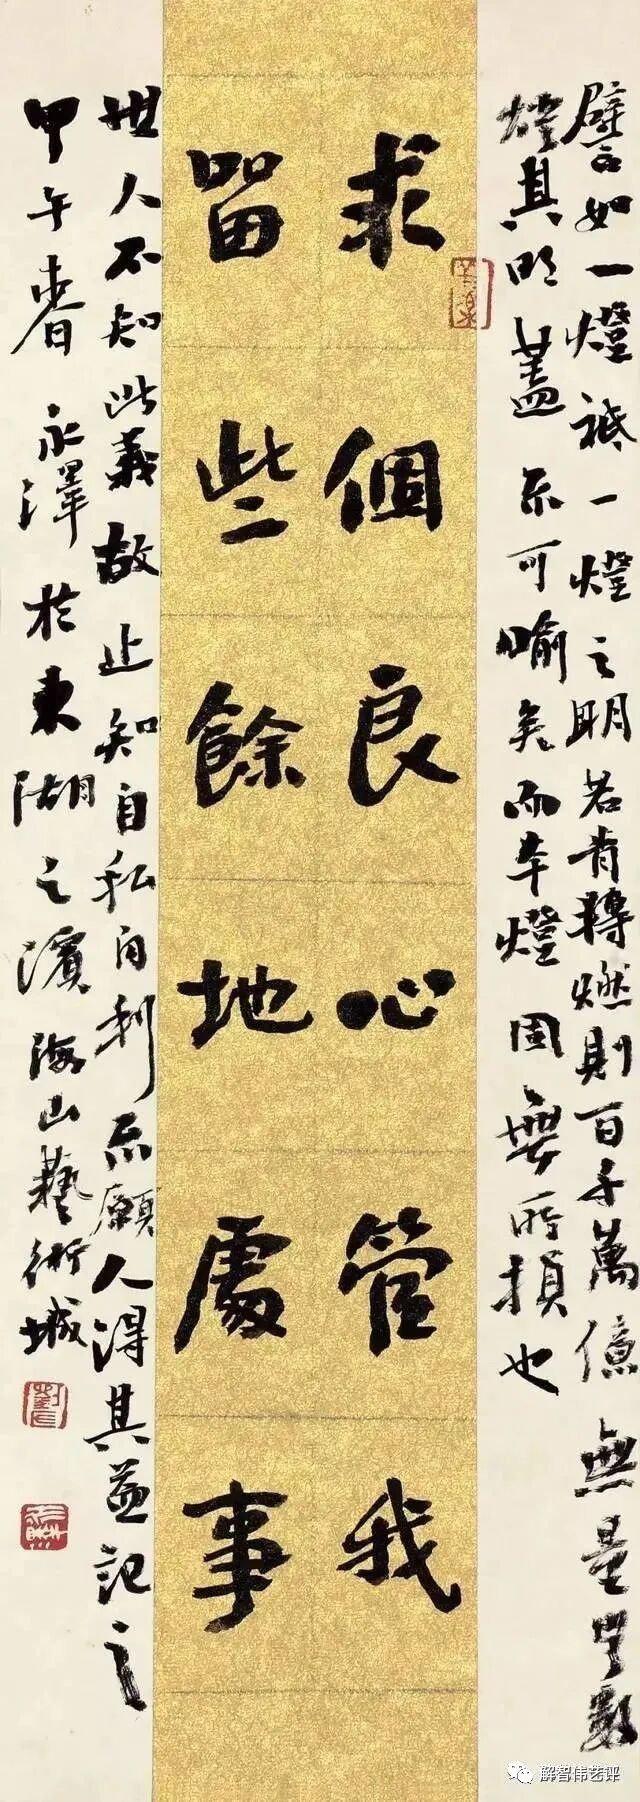 譬如一燈祗一燈之明若肯轉燃則百千萬億無量無數
燈其明蓋不可喻矣而本燈固無所損也
求個良心管我
留些餘地處事
世人不知此義故止知自私自利不願人得其益記之
甲午春永澤於東湖之濱海山藝術城
解智伟艺评